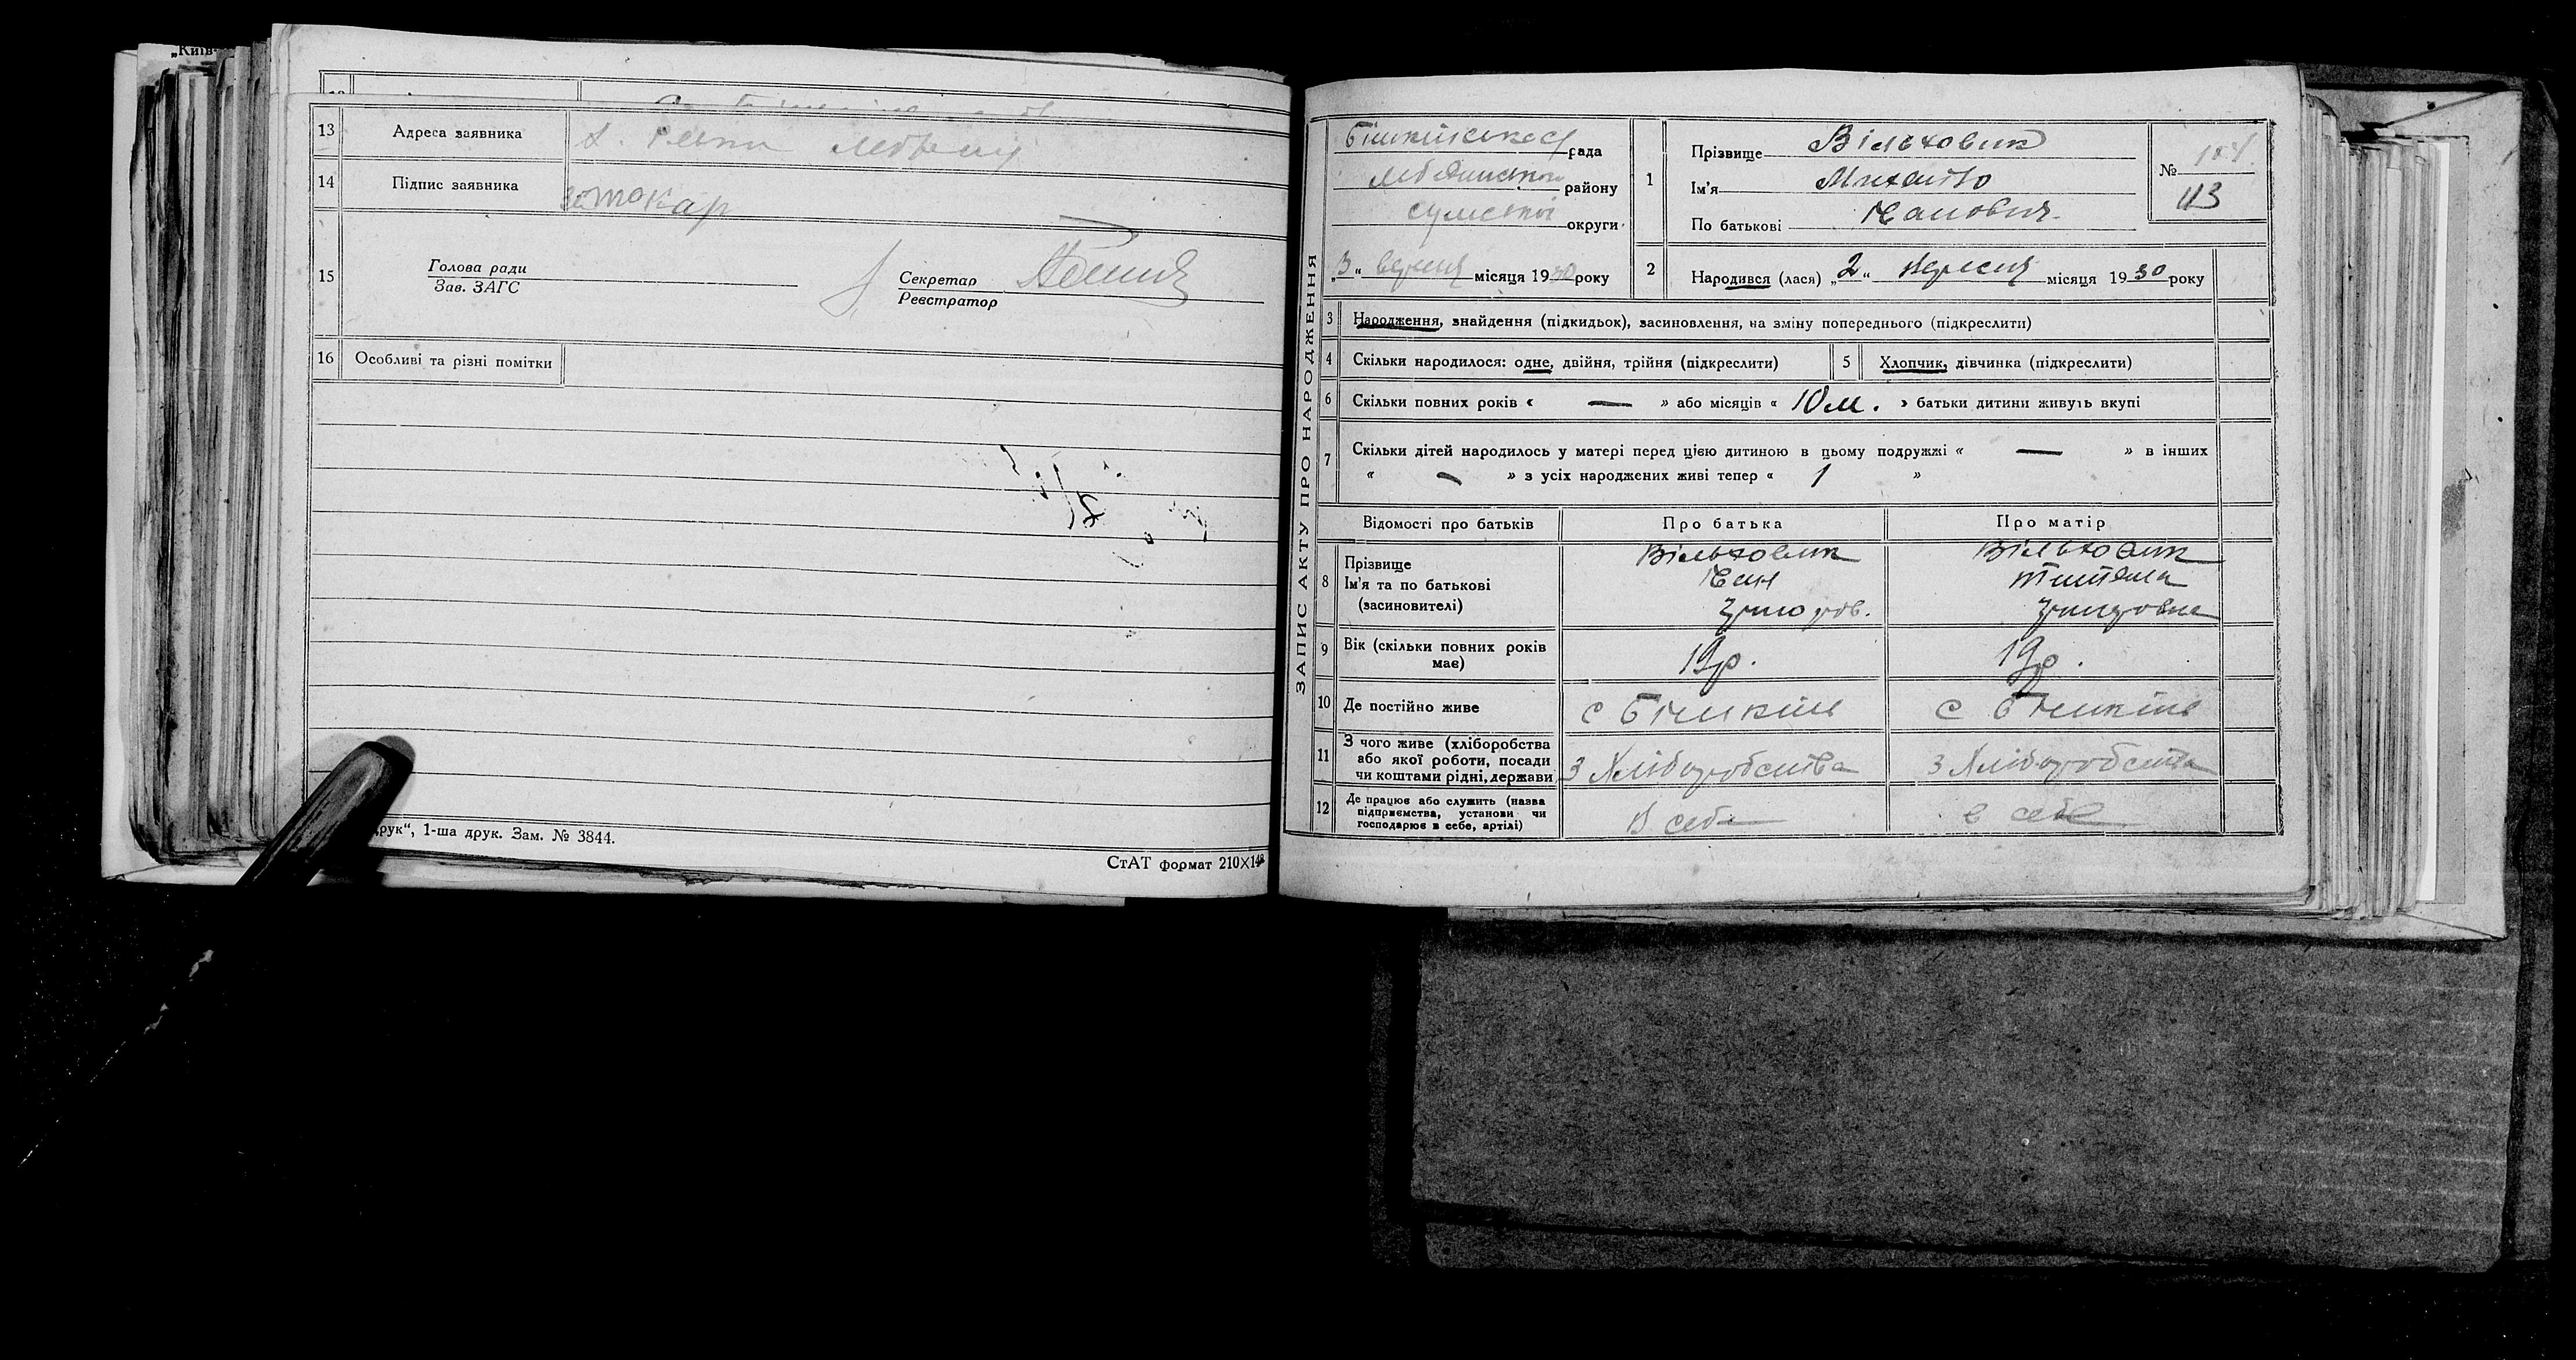 „Київ-
13 Адреса заявника
14 Підпис заявника
15 Голова ради
Зав. ЗАГС
Секретар
Реєстратор
16 Особливі та різні помітки
друк“, 1-ша друк. Зам. № 3844.
СтАТ формат 210×148
ЗАПИС АКТУ ПРО НАРОДЖЕННЯ
рада
району
Сумської округи
„3“ вересня місяця 1930 року
1 Прізвище Вільховик
Ім'я Михайло
По батькові
№
113
2 Народився (лася) „2“ вересня місяця 1930 року
3 Народження, знайдення (підкидьок), засиновлення, на зміну попереднього (підкреслити)
4 Скільки народилося: одне, двійня, трійня (підкреслити)
5 Хлопчик, дівчинка (підкреслити)
6 Скільки повних років « — » або місяців « 10 м. » батьки дитини живуть вкупі
7 Скільки дітей народилось у матері перед цією дитиною в цьому подружжі « — » в інших
« — » з усіх народжених живі тепер « 1 »
Відомості про батьків Про батька Про матір
8 Прізвище
Ім'я та по батькові
(засновителі)
Вільховик
Вільховик
9 Вік (скільки повних років
має)
19 р. 19 р.
10 Де постійно живе
с Бишкінь с Бишкінь
11 З чого живе (хліборобства
або якої роботи, посади
чи коштами рідні, держави
З Хліборобства З Хліборобства
12 Де працює або служить (назва
підприємства, установи чи
господарює в себе, артілі)
В себе в себе